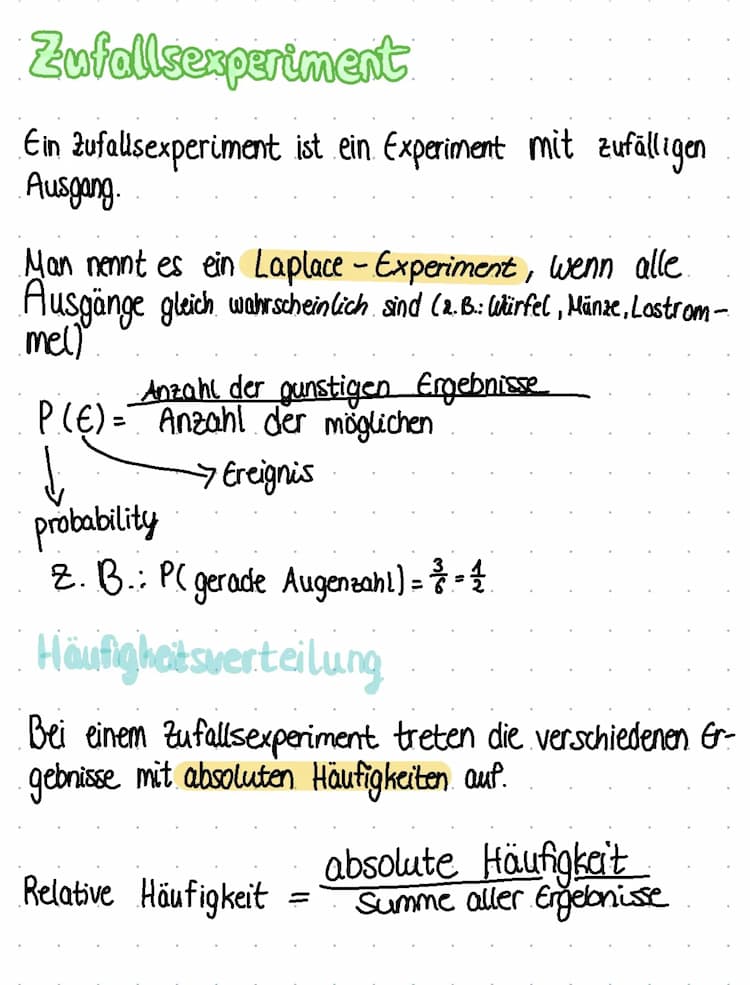 Zufallsexperiment
Ein Zufallsexperiment ist ein Experiment mit zufälligen
Ausgang.
Man nennt es ein Laplace-Experiment, wenn alle
Ausgänge gleich wahrscheinlich sind (z.B.: Würfel, Münze, Lostrom-
mel)
P(E) = Anzahl der gunstigen Ergebnisse / Anzahl der möglichen
→ Ereignis
probability
z. B.: P(gerade Augenzahl) = 3/6 = 1/2
Häufigkeitsverteilung
Bei einem Zufallsexperiment treten die verschiedenen Er-
gebnisse mit absoluten Häufigkeiten auf.
Relative Häufigkeit = absolute Häufigkeit / Summe aller Ergebnisse